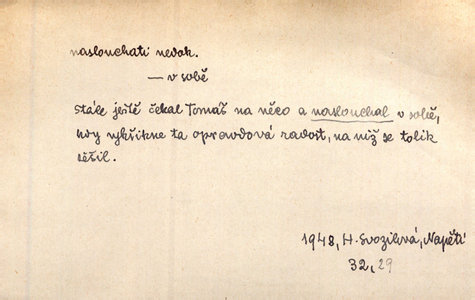 naslouchati nedok.
— v sobě
stále ještě čekal Tomáš na něco a naslouchal v sobě,
kdy vykřikne ta opravdová radost, na niž se tolik
těšil.
1948, H. Svozilová, Napětí
32, 29